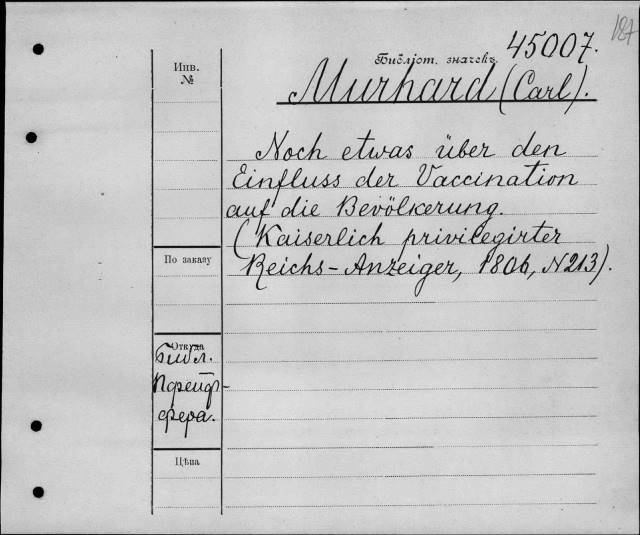 187
Библіот. значекъ 45007.
Инв. №
Murhard (Carl).
Noch etwas über den
Einfluss der Vaccination
auf die Bevölkerung.
(Kaiserlich privilegirter
Reichs-Anzeiger, 1806, N 213).
По заказу
Откуда
Библ.
Пфейф-
фера.
Цѣна